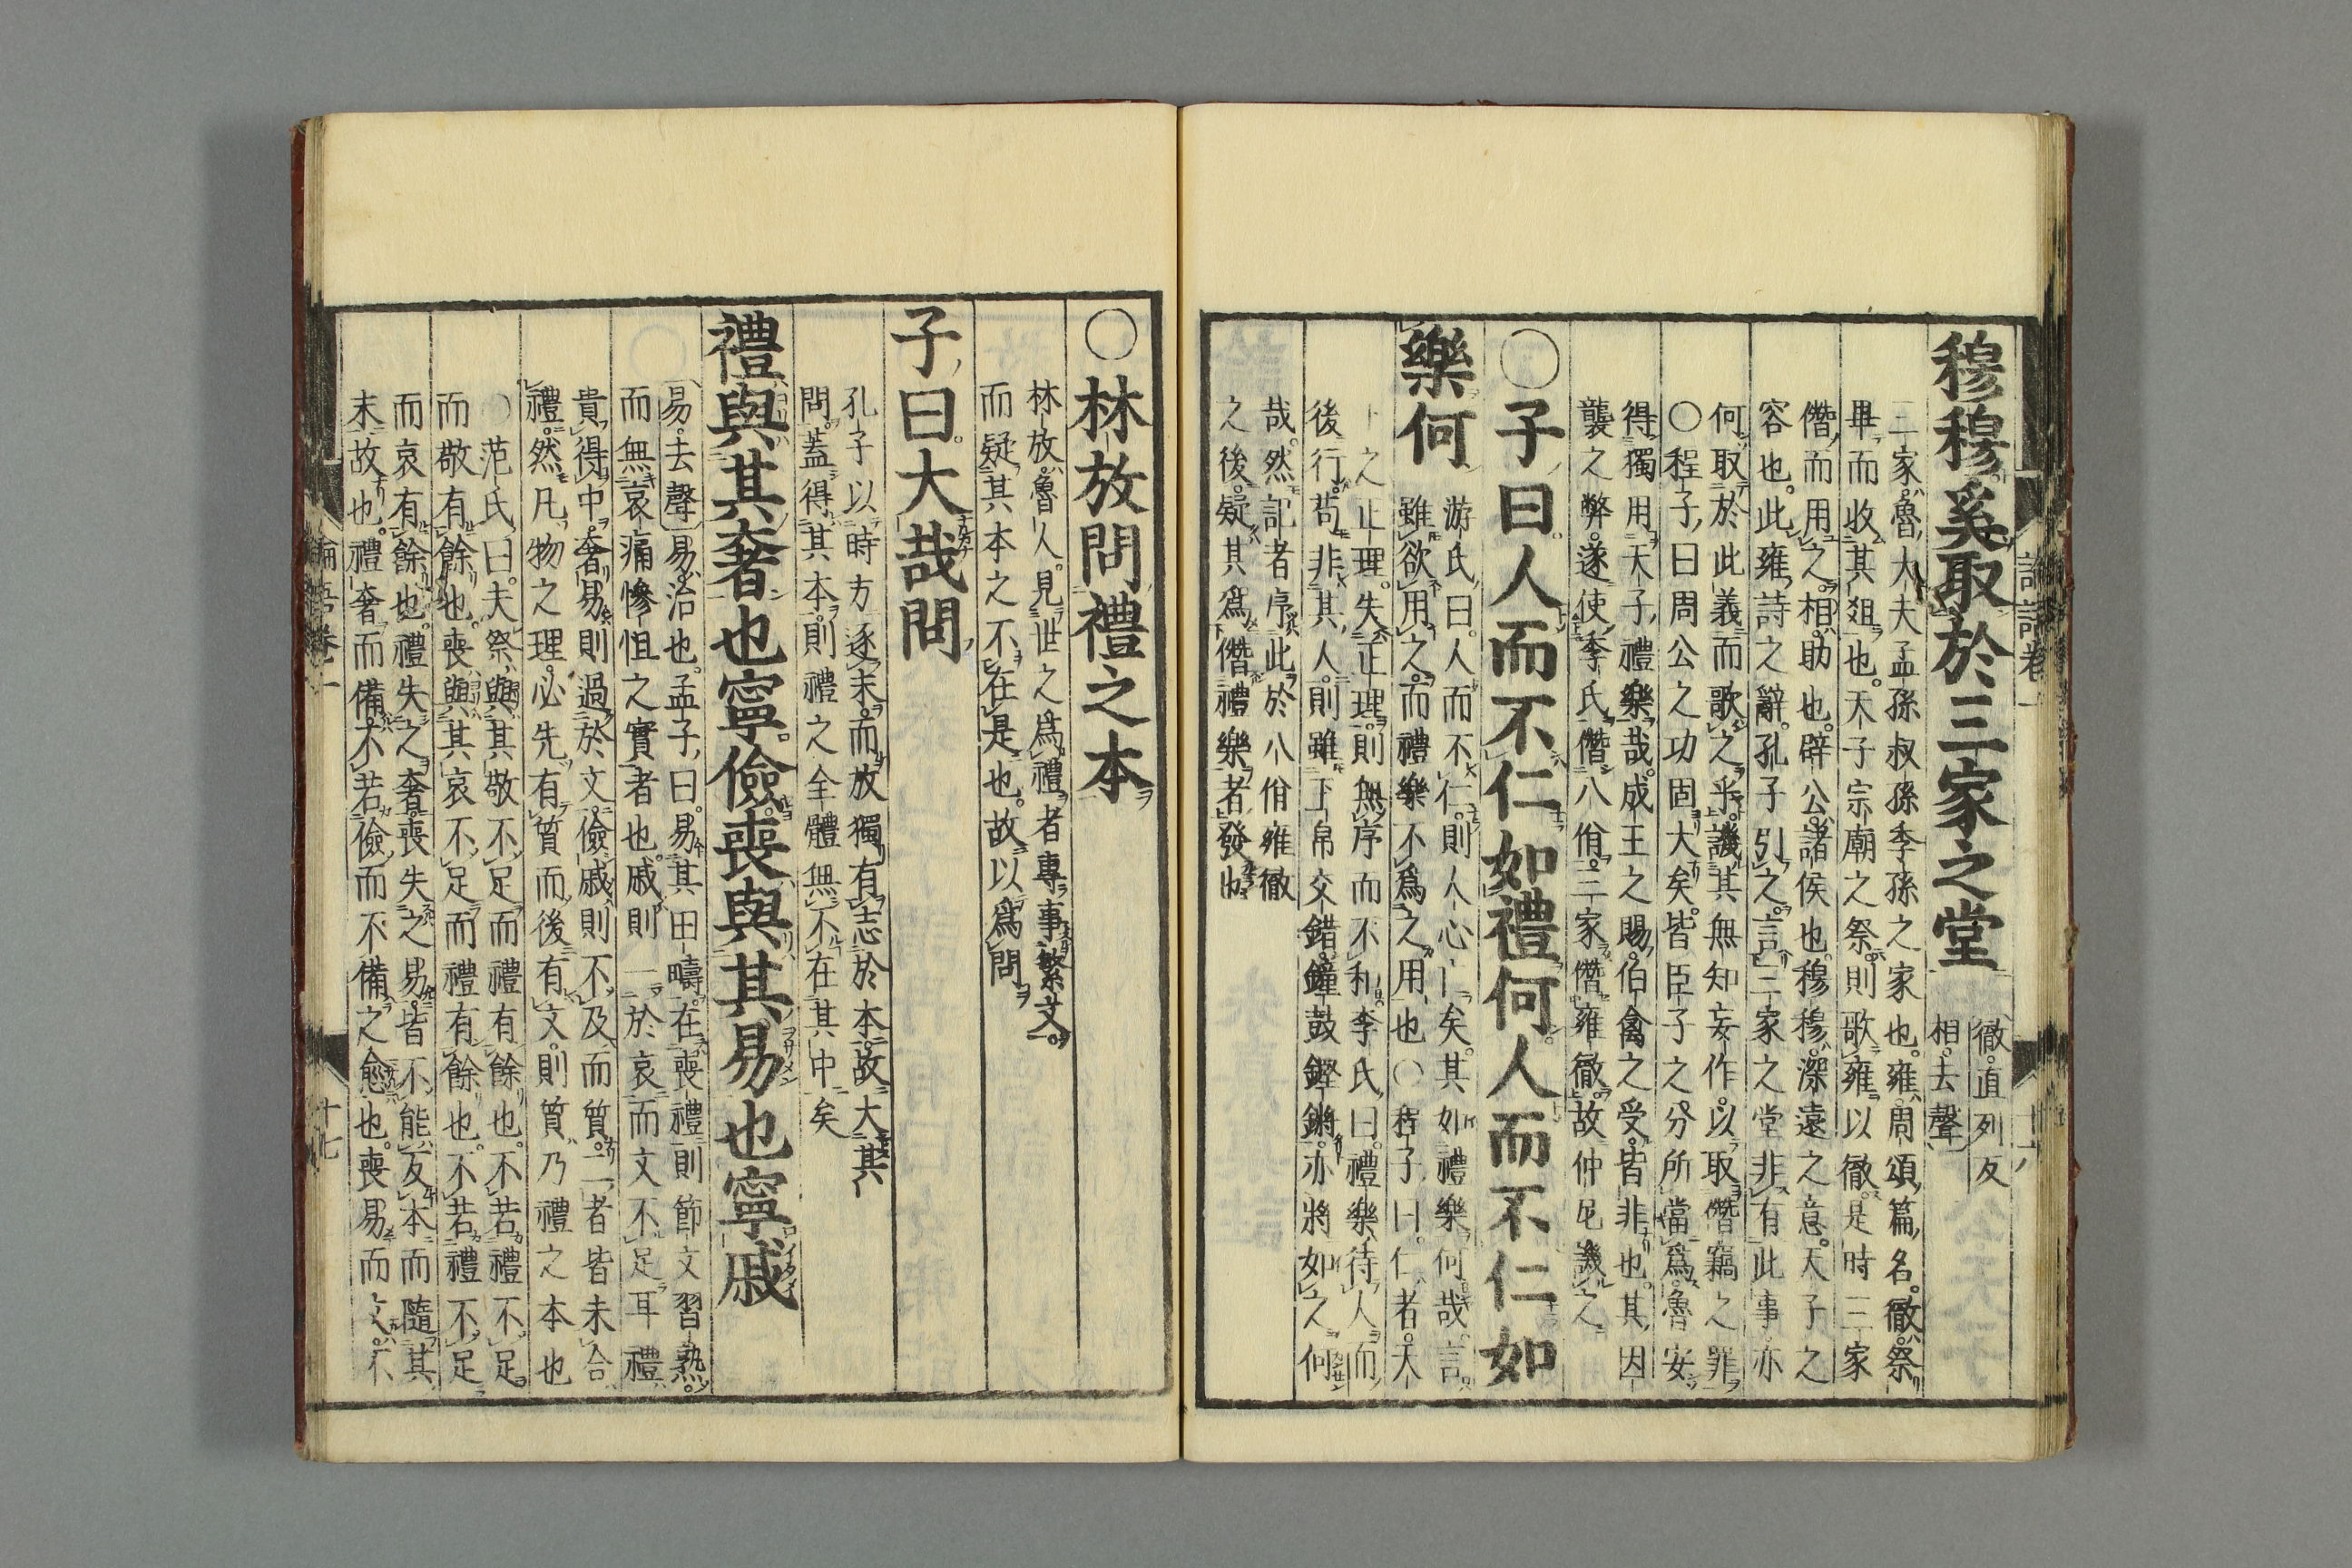 穆穆奚取於三家之堂
徹直列反
相去聲
三家魯大夫孟孫叔孫季孫之家也雍周頌篇名徹祭
畢而收其俎也天子宗廟之祭則歌雍以徹是時三家
僭而用之相助也辟公諸侯也穆穆深遠之意天子之
容也此雍詩之辭孔子引之言三家之堂非有此事亦
何取於此義而歌之乎譏其無知妄作以取僭竊之罪
○程子曰周公之功固大矣皆臣子之分所當爲魯安
得獨用天子禮樂哉成王之賜伯禽之受皆非也其因
襲之弊遂使季氏僭八佾三家僭雍徹故仲尼譏之
○子曰人而不仁如禮何人而不仁如
樂何
游氏曰人而不仁則人心亡矣其如禮樂何哉言
雖欲用之而禮樂不爲之用也○程子曰仁者天
下之正理失正理則無序而不和李氏曰禮樂待人而
後行苟非其人則雖玉帛交錯鐘鼓鏗鏘亦將如之何
哉然記者序此於八佾雍徹
之後疑其爲僭禮樂者發也
○林放問禮之本
林放魯人見世之爲禮者專事繁文
而疑其本之不在是也故以爲問
子曰大哉問
孔子以時方逐末而放獨有志於本故大其
問蓋得其本則禮之全體無不在其中矣
禮與其奢也寧儉喪與其易也寧戚
易去聲易治也孟子曰易其田疇在喪禮則節文習熟
而無哀痛慘怛之實者也戚則一於哀而文不足耳禮
貴得中奢易則過於文儉戚則不及而質二者皆未合
禮然凡物之理必先有質而後有文則質乃禮之本也
○范氏曰夫祭與其敬不足而禮有餘也不若禮不足
而敬有餘也喪與其哀不足而禮有餘也不若禮不足
而哀有餘也禮失之奢喪失之易皆不能反本而隨其
末故也禮奢而備不若儉而不備之愈也喪易而文不
論語卷一
十七